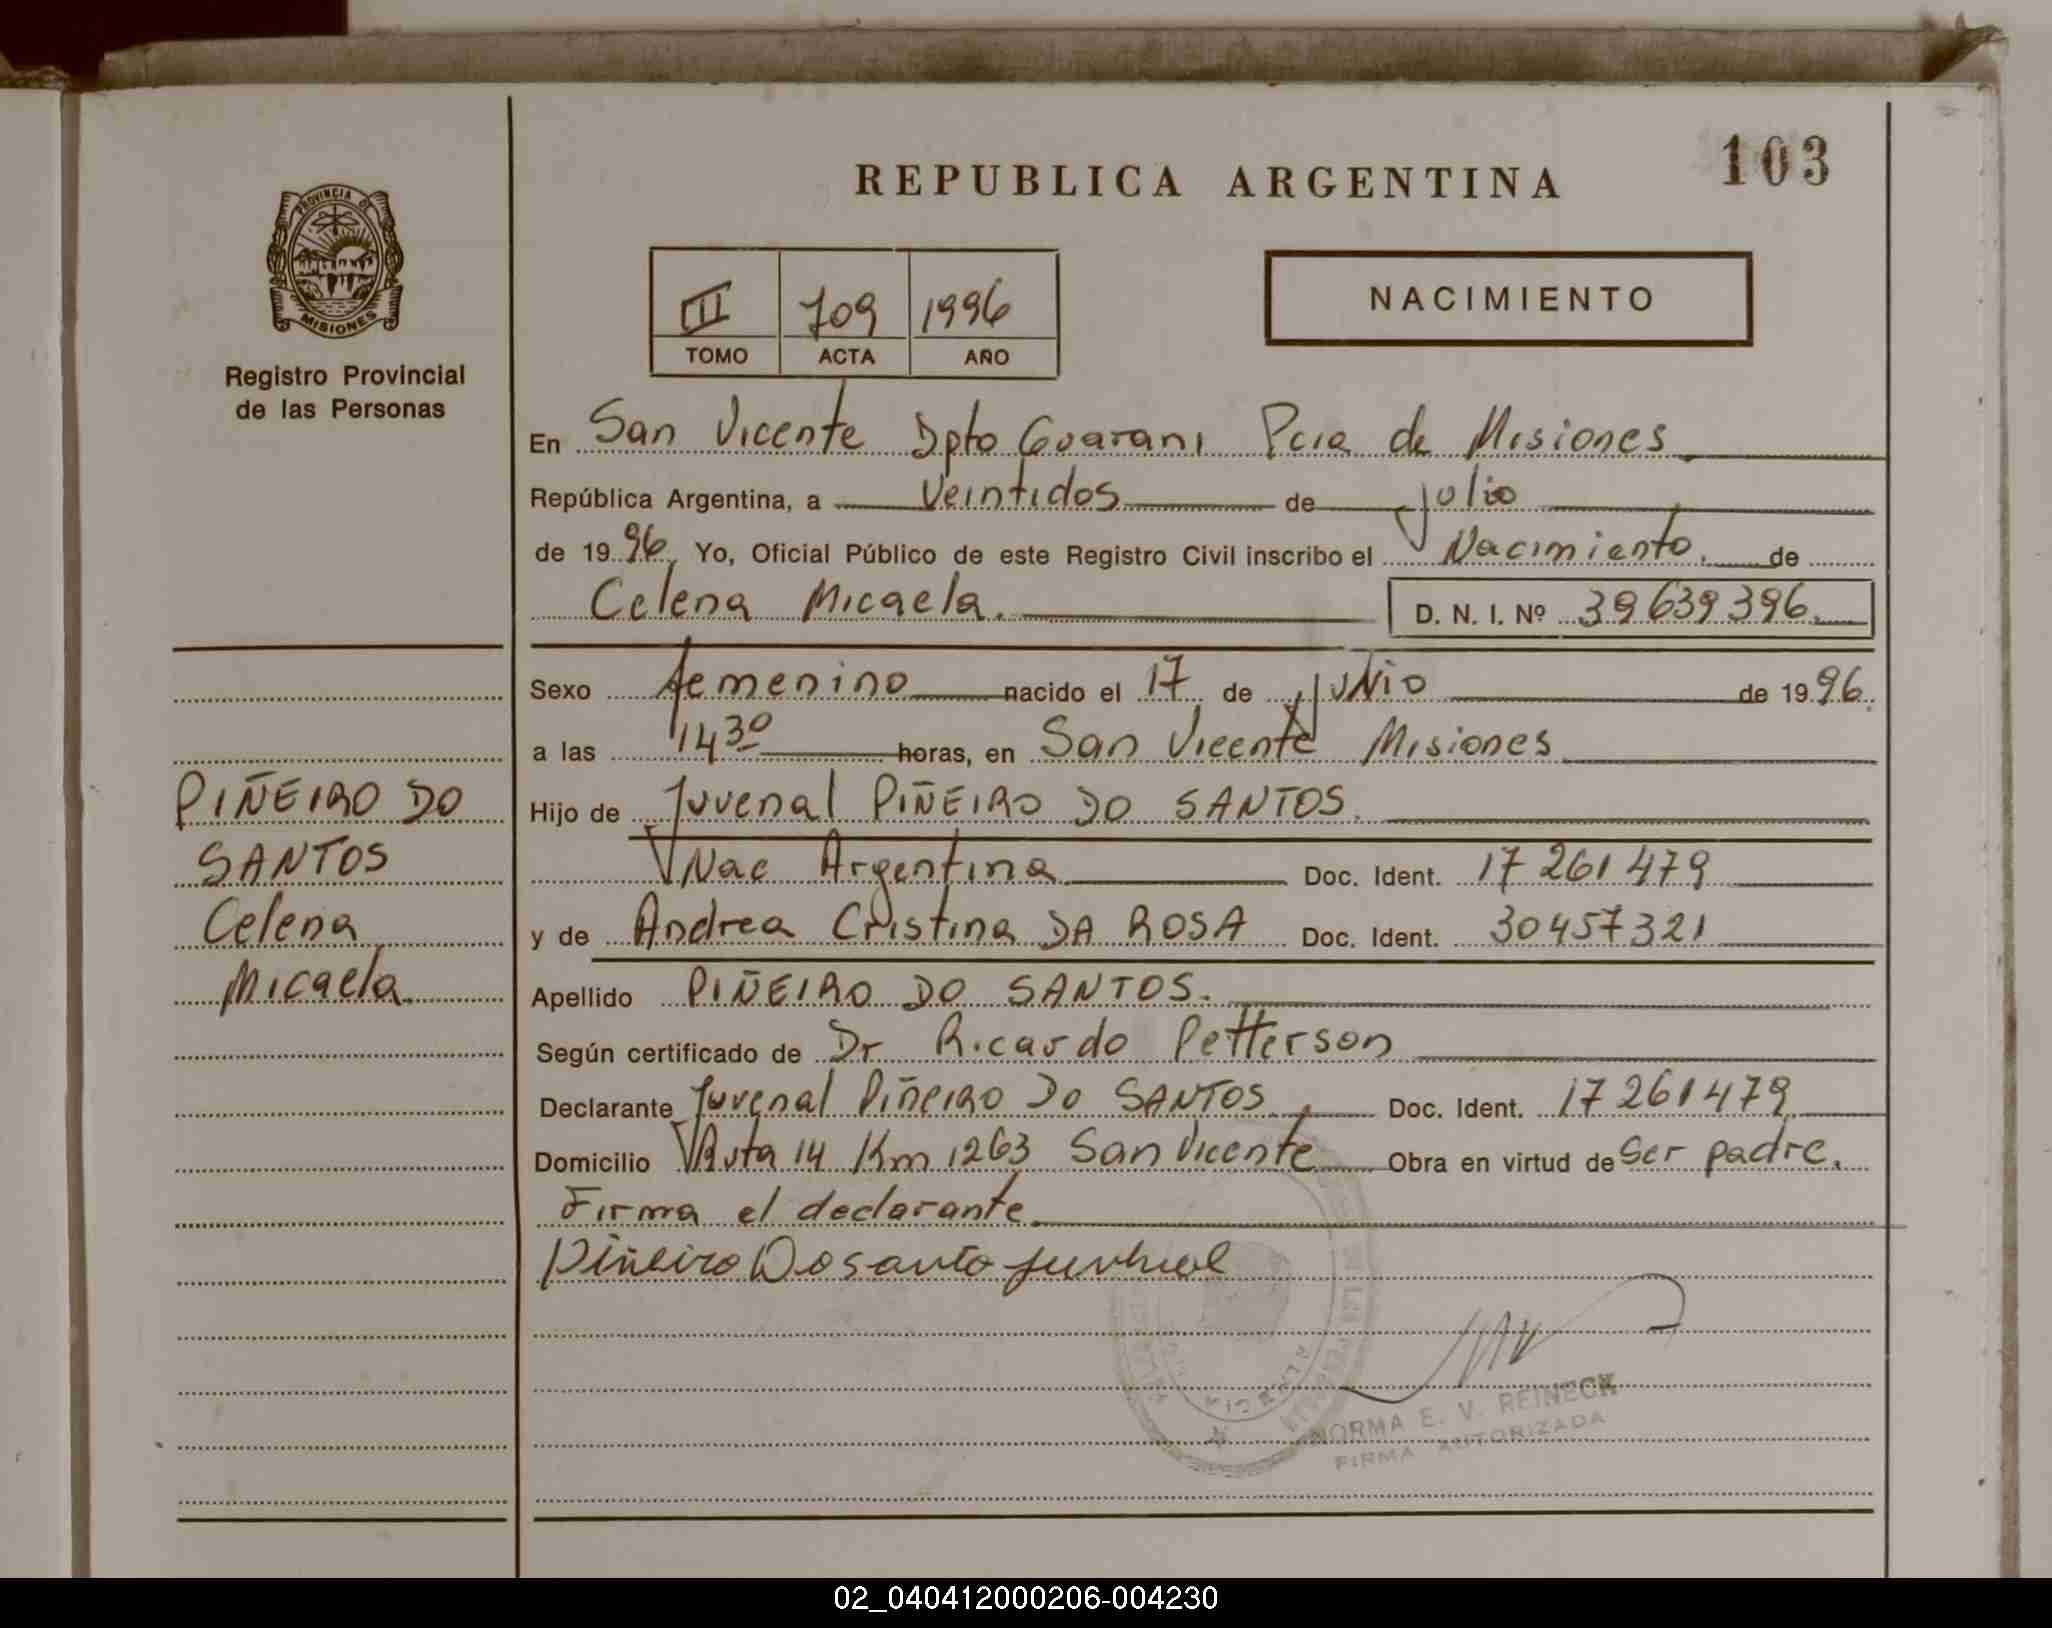 REPUBLICA ARGENTINA
103
PROVINCIA DE
MISIONES
Registro Provincial
de las Personas
III 709 1996
TOMO ACTA AÑO
NACIMIENTO
En San Vicente Dpto Guarani Pcia de Misiones
República Argentina, a Veintidos de julio
de 1996 Yo, Oficial Público de este Registro Civil inscribo el Nacimiento de
Celena Micaela. D. N. I. Nº 39639396
Sexo femenino nacido el 17 de junio de 1996.
a las 14 30 horas, en San Vicente Misiones
PIÑEIRO DO
SANTOS
Celena
Micaela.
Hijo de Juvenal PIÑEIRO DO SANTOS.
Nac Argentina Doc. Ident. 17 261 479
y de Andrea Cristina DA ROSA Doc. Ident. 30457321
Apellido PIÑEIRO DO SANTOS.
Según certificado de Dr Ricardo Petterson
Declarante Juvenal Piñeiro Do SANTOS Doc. Ident. 17 261479
Domicilio Ruta 14 Km 1263 San Vicente Obra en virtud de ser padre.
Firma el declarante
Piñeiro Do santo
NORMA E. V. REINECK
FIRMA AUTORIZADA
02_040412000206-004230